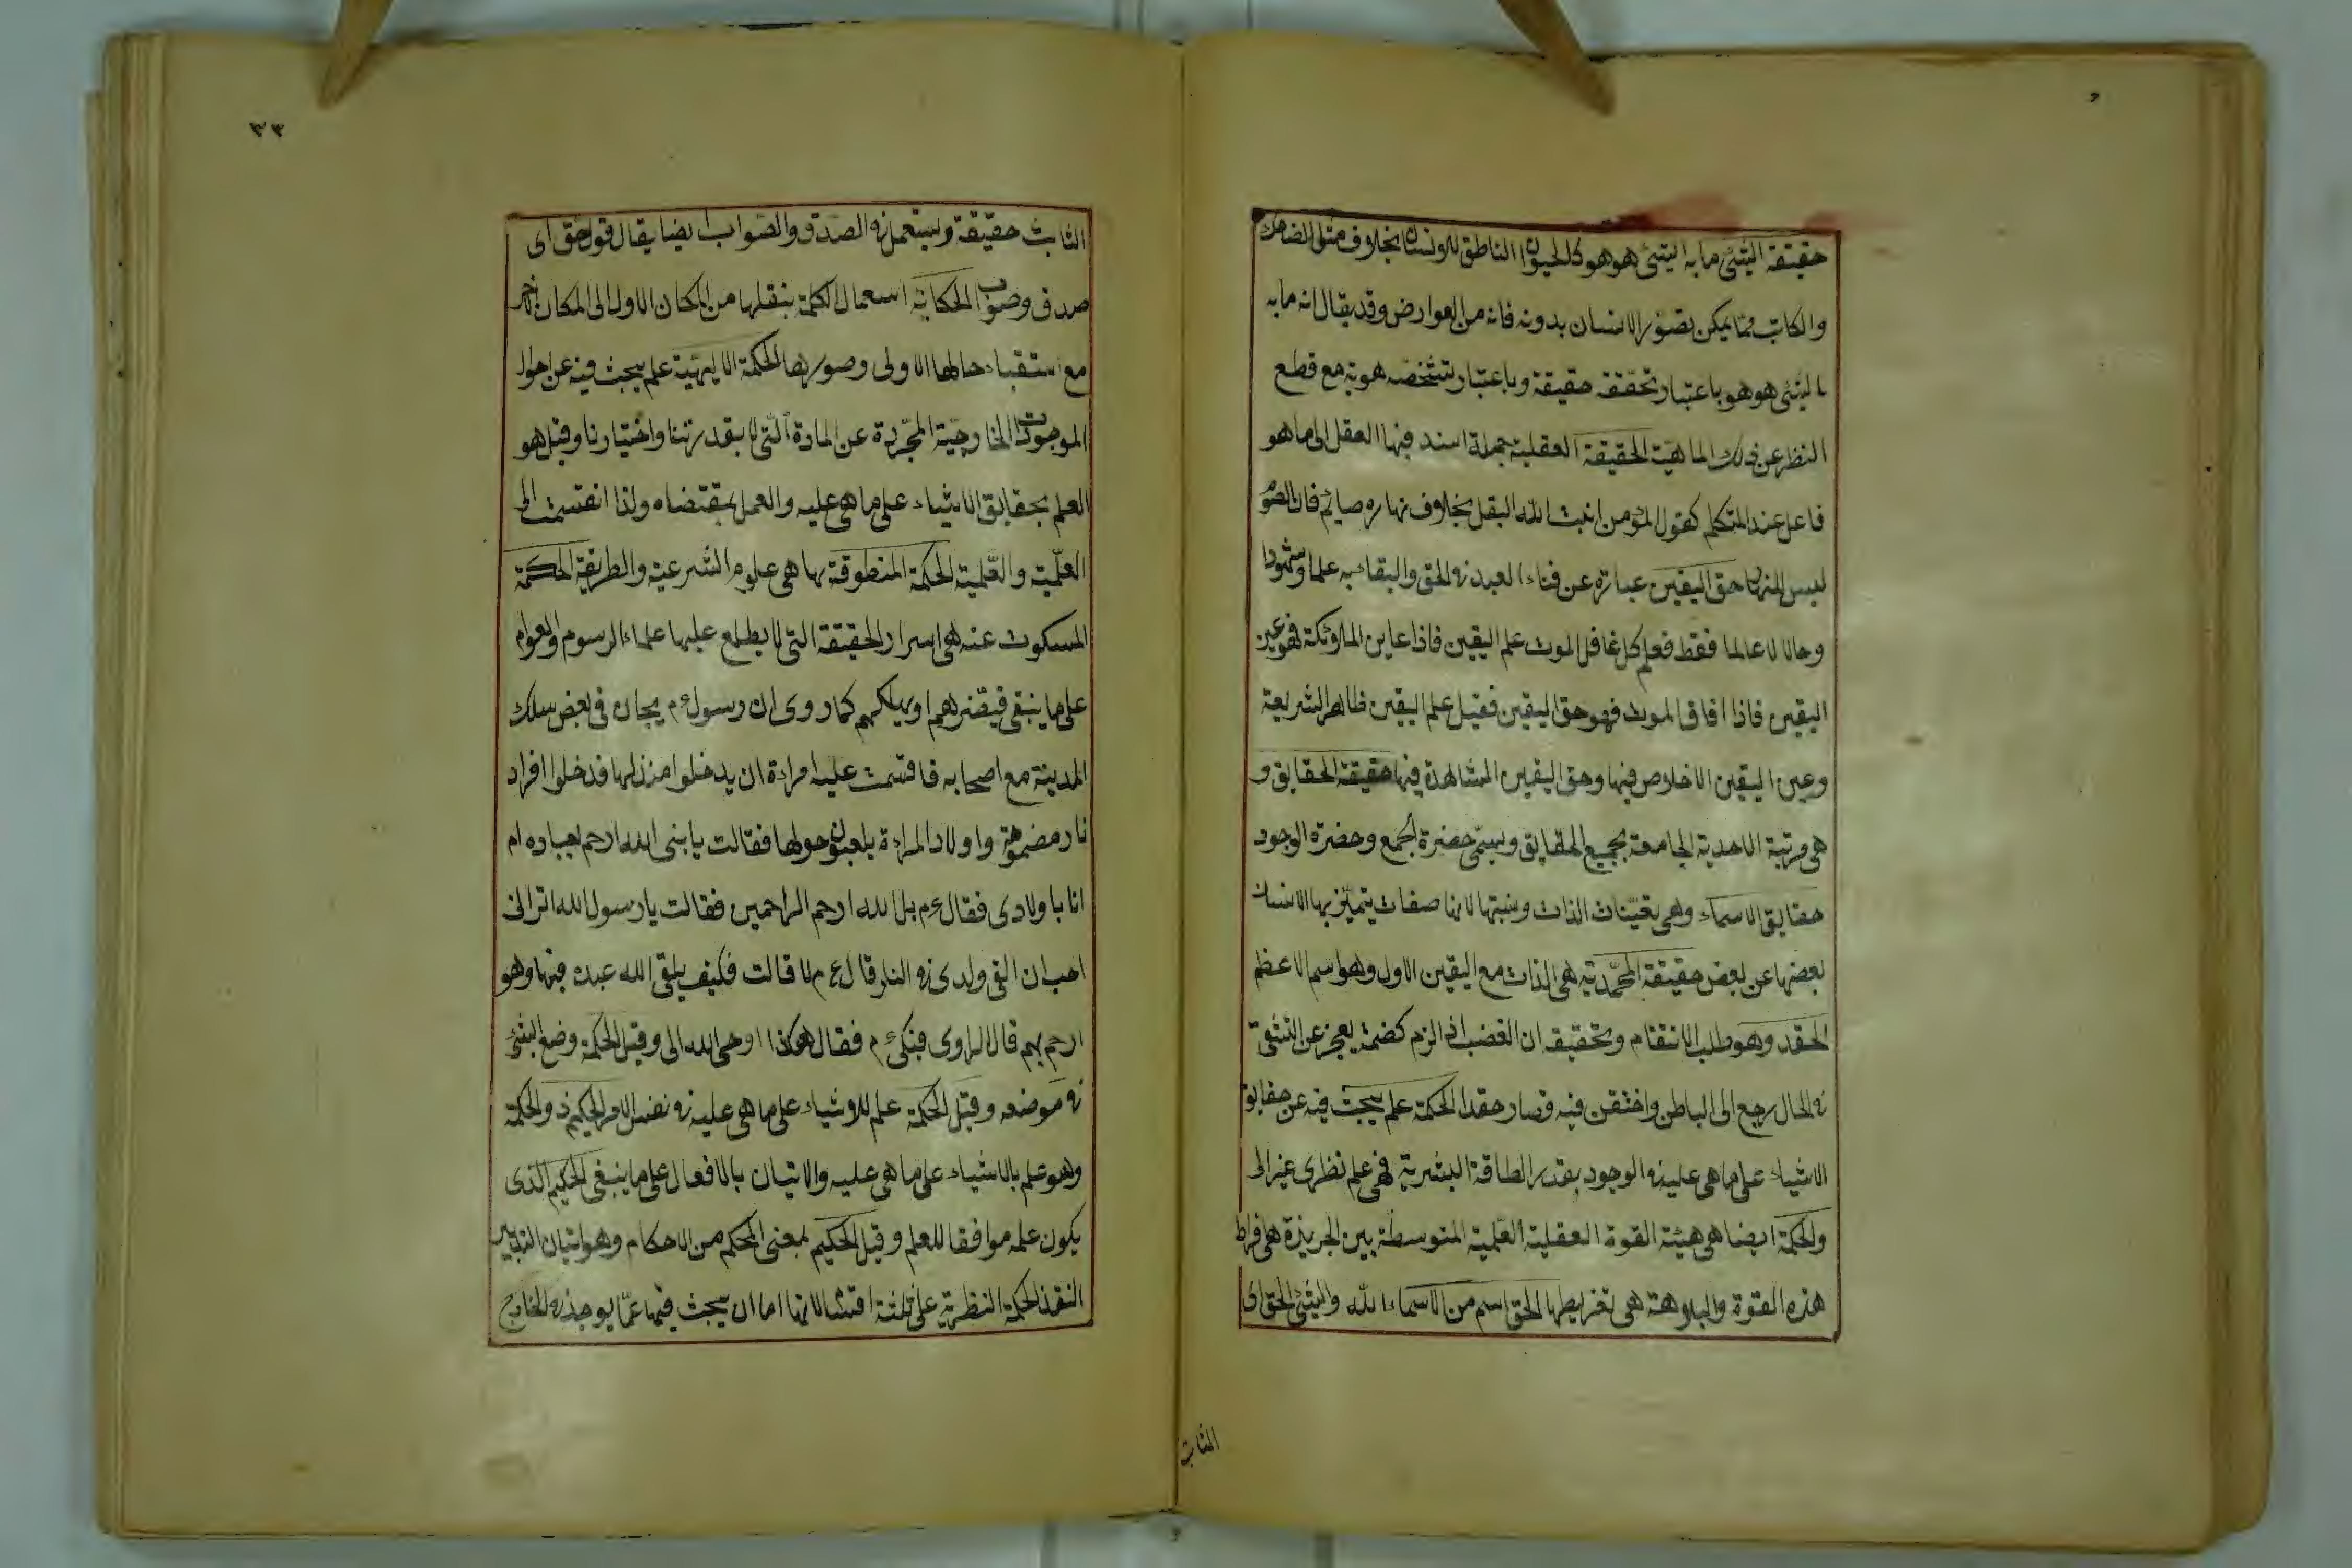 حقيقة الشئ ما به الشئ هو هو كالحيوان الناطق للانسان بخلاف مثل الضاحك
والكاتب مما يمكن تصور الانسان بدونه فانه من العوارض وقد يقال انه ما به
الشئ هو هو باعتبار تحققه حقيقة وباعتبار تشخصه هوية مع قطع
النظر عن ذلك الماهية الحقيقة العقلية جملة اسند فيها العقل الى ما هو
فاعل عند المتكلم كقول المؤمن انبت الله البقل بخلاف نهاره صايم فان الصوم
ليس للنهار حق اليقين عبارة عن فناء العبد فى الحق والبقاء به علما وشهودا
وحالا لا علما فقط فعلم كل غافل الموت علم اليقين فاذا عاين الملائكة فهو عين
اليقين فاذا افاق الموت فهو حق اليقين فقيل علم اليقين ظاهر الشريعة
وعين اليقين الاخلاص فيها وحق اليقين المشاهدة فيها حقيقة الحقايق و
هى مرتبة الاحدية الجامعة بجميع الحقايق وسمى حضرة الجمع وحضرة الوجود
حقايق الاسماء وهى تعينات الذات ونسبتها لانها صفات يتميز بها الانسان
بعضها عن بعض حقيقة المحمدية هى الذات مع اليقين الاول وهو اسم الاعظم
الحقد وهو طلب الانتقام وتحقيقه ان الغضب اذ الزم كضمه يعجز عن التشفى
فى الحال رجع الى الباطن واختقن فيه فصار حقدا الحكمة علم يبحث فيه عن حقايق
الاشياء على ما هى عليه فى الوجود بقدر الطاقة البشرية فهى علم نظرى غير الى
والحكمة ايضا هى هيئة القوة العقلية العلمية المتوسطة بين الجربزة هى افراط
هذه القوة والبلاهة هى تغريطها الحق اسم من الاسماء الله والشئ الحق اى
الثابت
٣٣
الثابت حقيقة ويستعمل فى الصدق والصواب ايضا يقال قول حق اى
صدق وصواب الحكاية استعمال الكلمة بنقلها من المكان الاول الى المكان آخر
مع استقباء حالها الاولى وصورها الحكمة الالهية علم يبحث فيه عن احوال
الموجودات الخارجية المجردة عن المادة التى لا بقدرتنا واختيارنا وقيل هو
العلم بحقايق الاشياء على ما هى عليه والعمل بمقتضاه ولذا انقسمت الى
العلمية والعملية الحكمة المنطوقة بها هى علوم الشرعية والطريقة الحكمة
المسكوت عنه هى اسرار الحقيقة التى لا يطلع عليها علماء الرسوم والعوام
على ما ينبقى فيضرهم او يهلكهم كما روى ان رسول ءم يجان فى بعض سلك
المدينة مع اصحابه فاقسمت عليه امراءة ان يدخلوا منزلها فدخلوا افراد
نار مضموهة واولاد المراءة يلعبون حولها فقالت يا بنى الله ارحم بعباده ام
انا باولادى فقال ءم بل الله ارحم الراحمين فقالت يا رسول الله اترانى
احب ان القى ولدى فى النار قال ءم لا قالت فكيف يلقى الله عبده فيها وهو
ارحم بهم قال الراوى فبكى ءم فقال هكذا اوحى الله الى وقيل الحكمة وضع الشئ
فى موضعه وقيل الحكمة علم للاشياء على ما هى عليه فى نفس الامر الحكيم ذو الحكمة
وهو علم بالاشياء على ما هى عليه والاتيان بالافعال على ما ينبغى الحكيم الذى
يكون علمه موافقا للعلم وقيل الحكيم بمعنى المحكم من الاحكام وهو اتيان التدبير
النقذ الحكمة النظرية على ثلثة اقسام لانها اما ان يبحث فيها عما يوجد فى الخارج